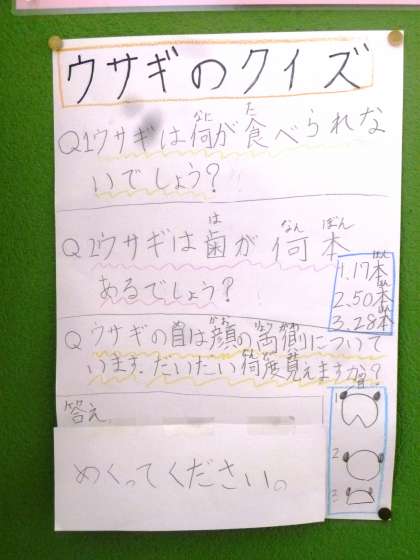 ウサギのクイズ
Q1ウサギは何が食べられな
いでしょう?
Q2ウサギは歯が何本
あるでしょう?
1.17本
2.50本
3.28本
Q ウサギの目は顔の両側について
います.だいたい何度見えますか?
1
2
3
答え
めくってください。